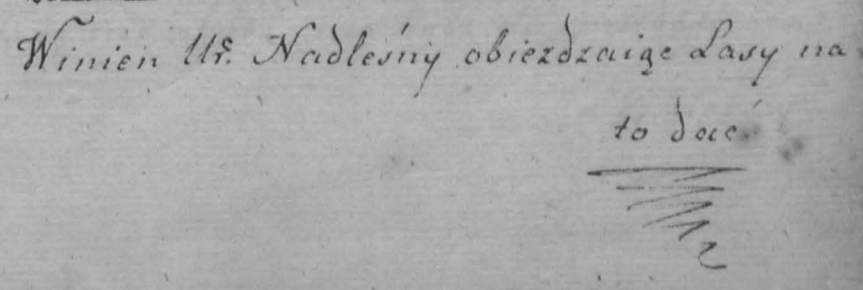 Winien Ur. Nadleśny obiezdzaiąc Lasy na
to dać